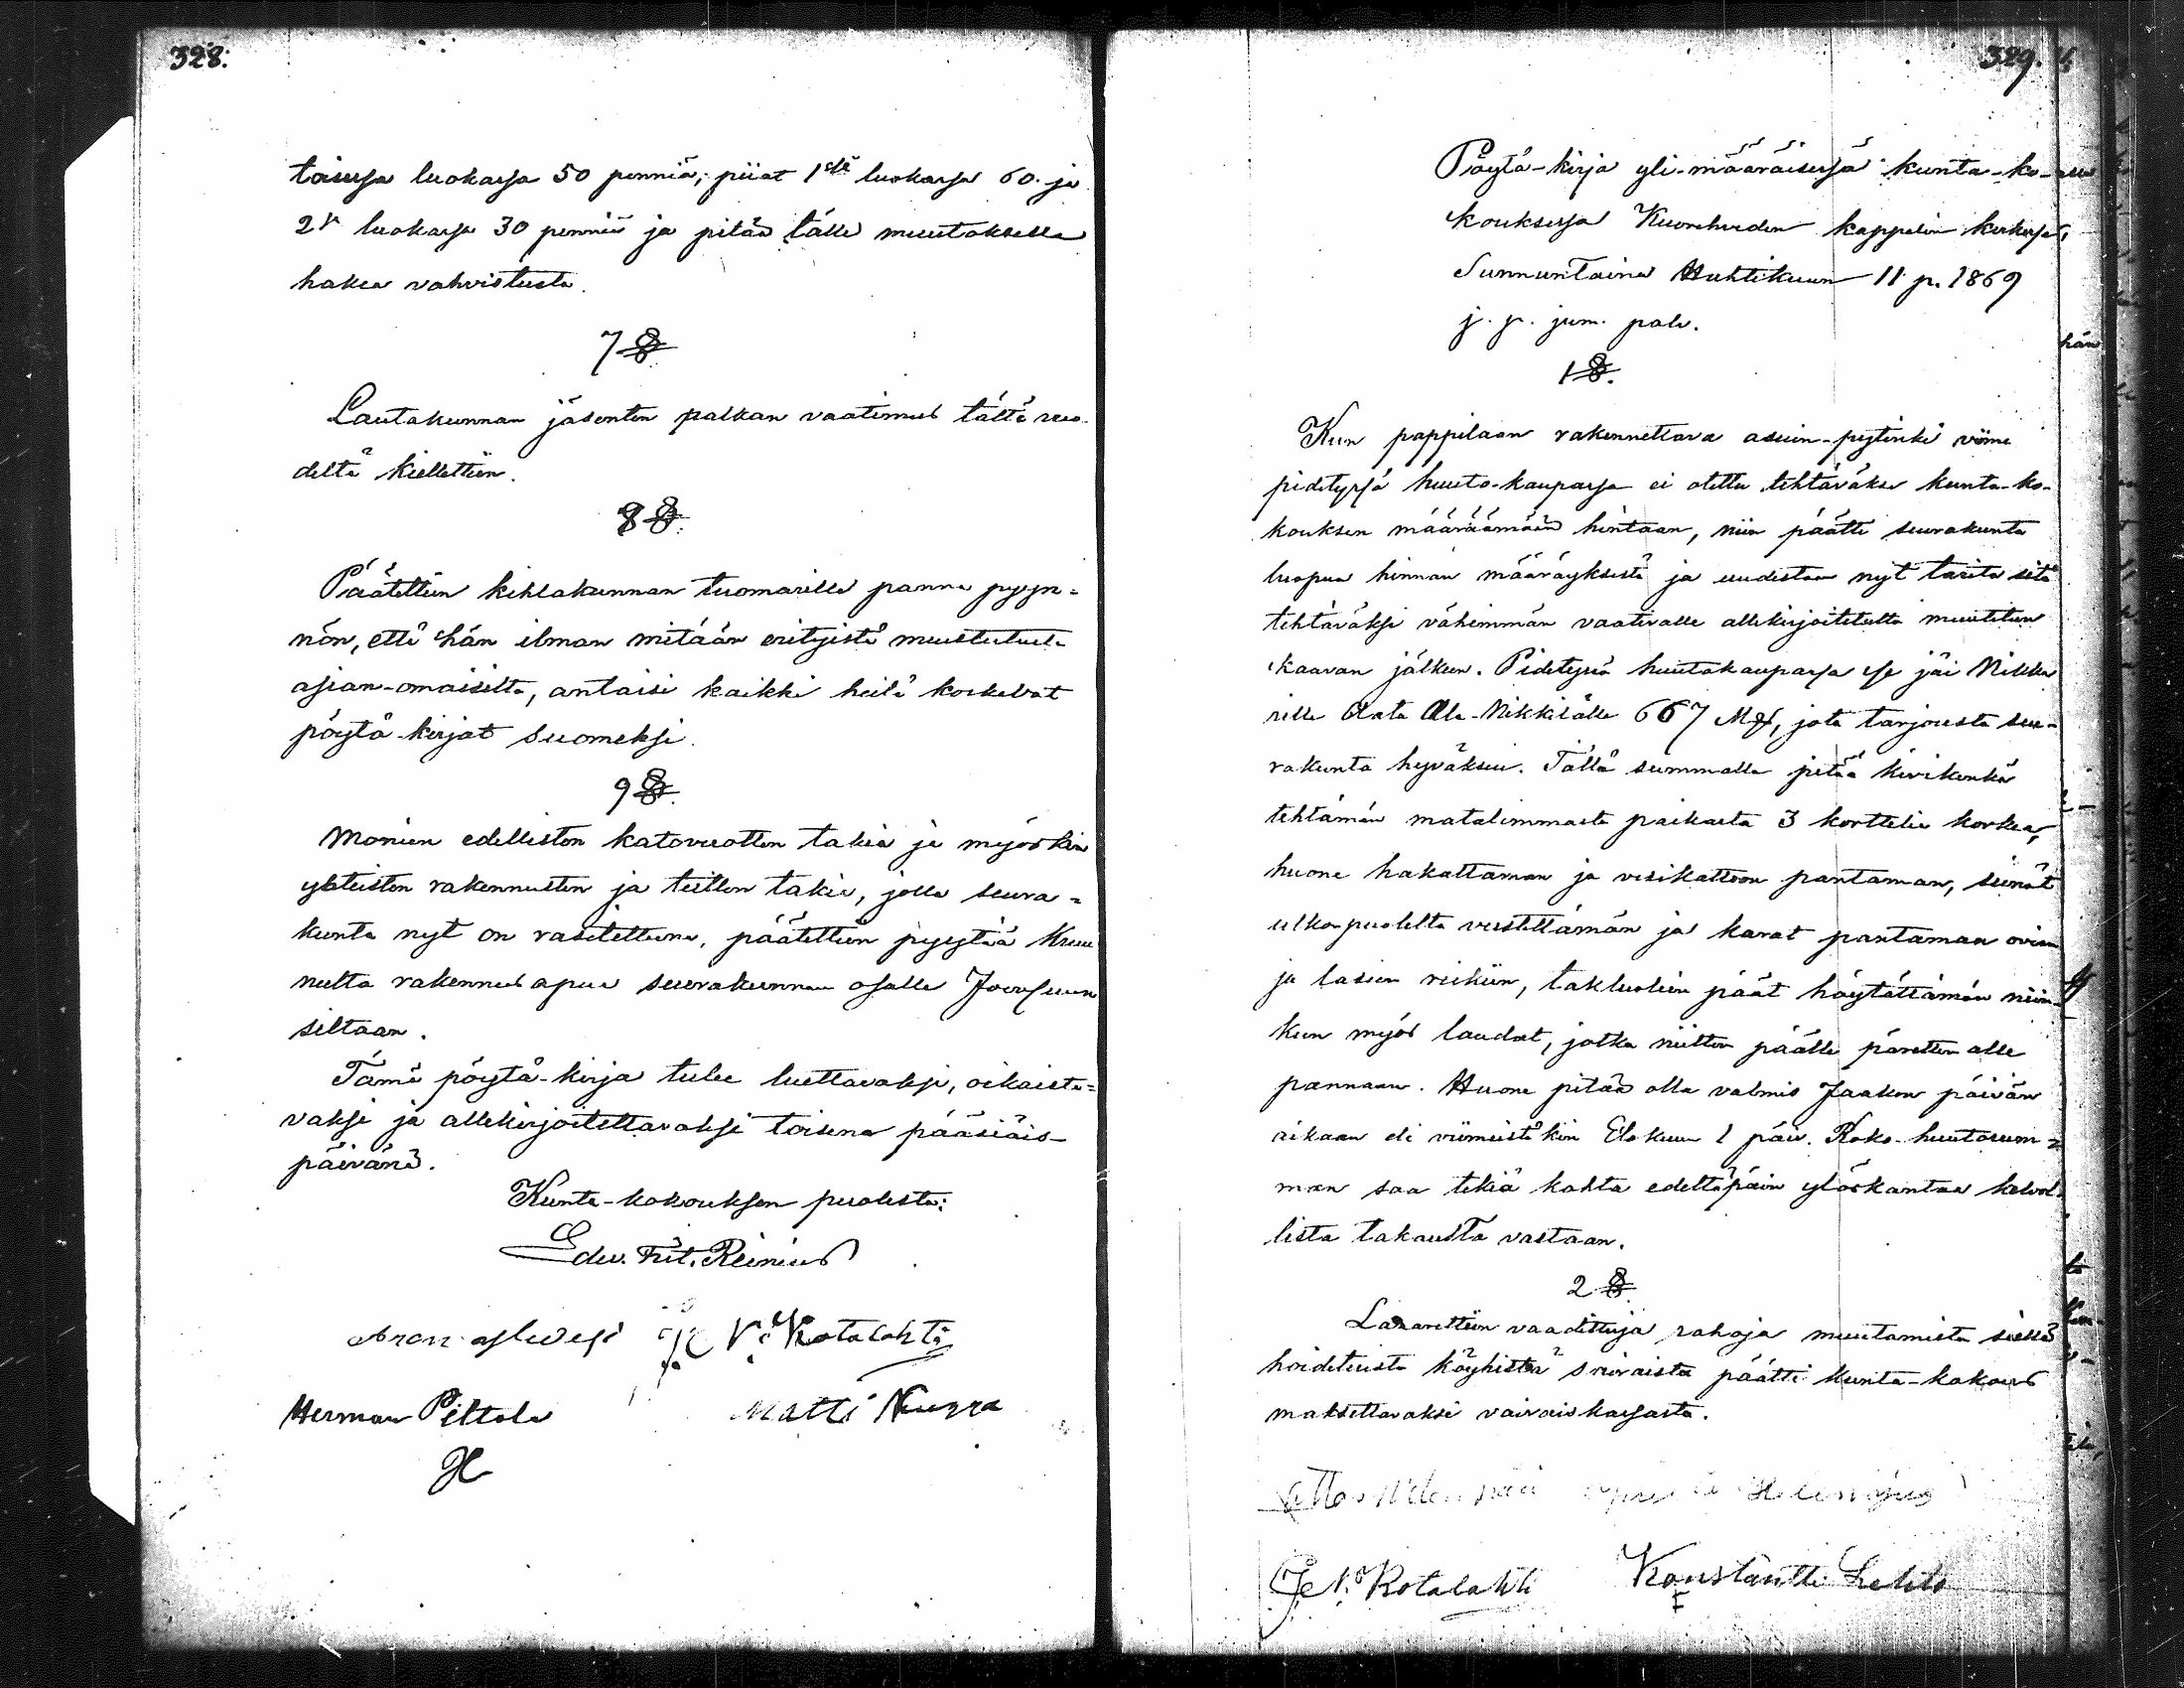 328.
toisessa luokassa 50 penniä, piiat 1ssä luokassa 60 ja
2r luokassa 30 penniä ja pitää tälle muutokselle
hakea vahvistusta.
7 §.
Lautakunnan jäsenten palkan vaatimus tältä vuo-
delta kiellettiin.
8 §.
Päätettiin kihlakunnan tuomarille panna pyyn-
nön, että hän ilman mitään erityistä muistutusta
asian-omaisilta, antaisi kaikki heitä koskevat
pöytä-kirjat suomeksi.
9 §.
Monien edellisten katovuotten takia ja myöskin
yhteisten rakennusten ja teitten takia, jolla seura-
kunta nyt on rasitettuna, päätettiin pyytää Kruu
nulta rakennus apua seurakunnan osalle Joensuun
siltaan.
Tämä pöytä-kirja tulee luettavaksi, oikaista-
vaksi ja allekirjoitettavaksi toisena pääsiäis-
päivänä.
Kunta-kokouksen puolesta:
Edv. Frit. Reinius
K V: Kotalahti
Herman Peltola Matti
329.
Pöytä-kirja yli-määräisessä kunta-ko-
kouksessa Kuoreveden kappelin kirkossa,
Sunnuntaina Huhtikuun 11 p. 1869
j. p. jum. palv.
1 §.
Kun pappilaan rakennettava asuin-pytinki viime
pidetyssä huuto-kaupassa ei otettu tehtäväksi kunta-ko-
kouksen määräämään hintaan, niin päätti seurakunta
luopua hinnan määräyksestä ja uudestaan nyt tarita sitä
tehtäväksi vähimmän vaativalle allekirjoitetulta muutetun
kaavan jälkeen. Pidetyssä huutokaupassa se jäi Nikka
rille Ala-Nikkilälle 667 Mk, jota tarjousta seu-
rakunta hyväksui. Tällä summalla pitää kivikenkä
tehtämän matalimmasta paikasta 3 korttelia korkea,
huone hakattaman ja vesikattoon pantaman, seinät
ulkopuolelta veistettämän ja karat pantaman ovien
ja lasien reikiin, päät höytättämän niin
kun myös laudat, jotka niitten päälle päretten alle
pannaan. Huone pitää olla valmis Jaakon päivän
aikaan eli viimeistäkin Elokuun 1 päiv. Koko huutosum-
man saa tekiä kahta edeltäpäin ylöskantaa kelvol-
lista takausta vastaan.
2 §.
Lazarettiin vaadittuja rahoja muutamista siellä
hoidetuista köyhistä sairaista päätti kunta-kokous
maksettavaksi vaivaiskassasta.
K V: Kotalahti Konstantti Lehtö